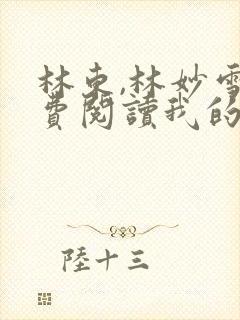 林东,林妙雪
費閱讀我的
陸十三